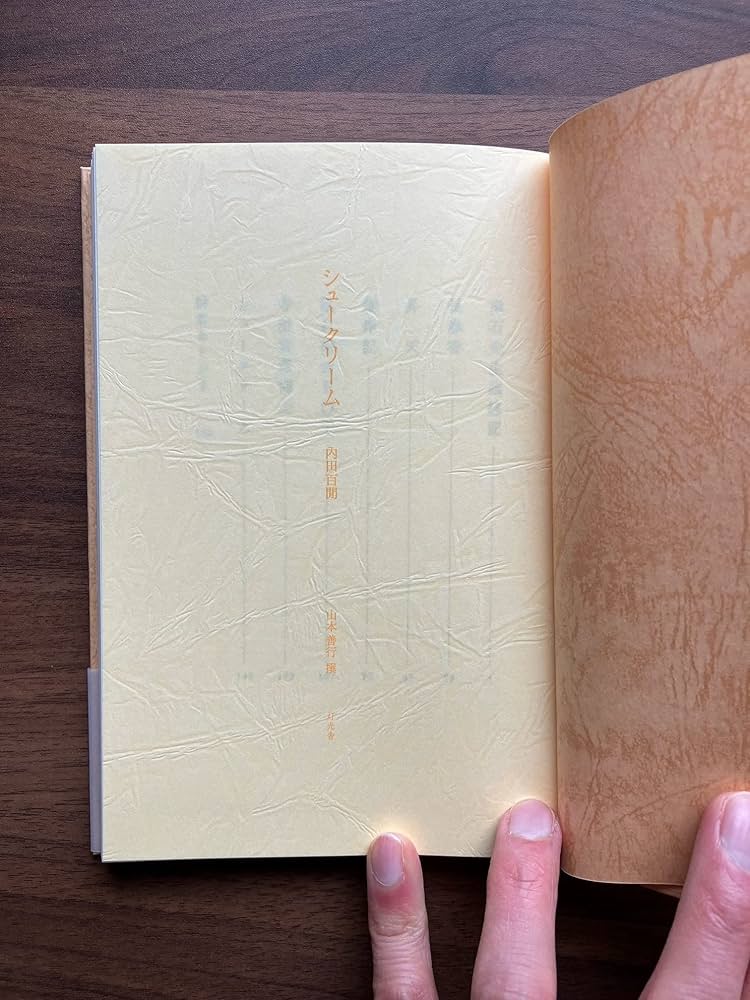 シュークリーム
内田百閒
山本善行 撰
灯光舎